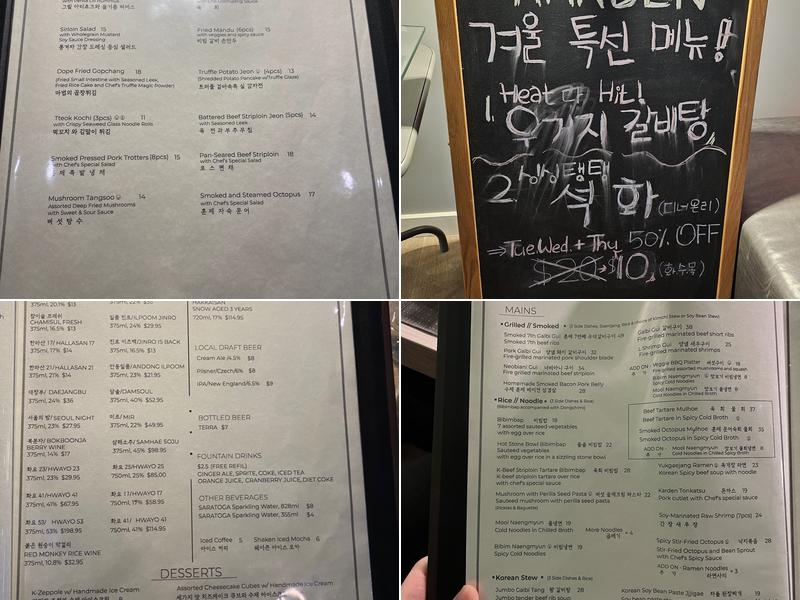 그릴 아티초크와 올가홈 하이스
Sirloin Salad 15
with Wholegrain Mustard
Soy Sauce Dressing
Fried Mandu (6pcs) 15
with veggies and spicy sauce
비빔 갈비 손만두
Dope Fried Gopchang 18
(Fried Small Intestine with Seasoned Leek,
Fried Rice Cake and Chef's Truffle Magic Powder)
마법의 곱창튀김
Truffle Potato Jeon (4pcs) 13
(Shredded Potato Pancake w/Truffle Glaze)
트러플 겉바속촉 실 감자전
Tteok Kochi (3pcs) 11
with Crispy Seaweed Glass Noodle Rolls
떡꼬치 와 김말이 튀김
Battered Beef Striploin Jeon (5pcs) 14
with Seasoned Leek
육 전과 부추무침
Smoked Pressed Pork Trotters (8pcs) 15
with Chef's Special Salad
훈제 족발냉채
Pan-Seared Beef Striploin 18
with Chef's Special Salad
로스편채
Mushroom Tangsoo 14
Assorted Deep Fried Mushrooms
with Sweet & Sour Sauce
버섯탕수
Smoked and Steamed Octopus 17
with Chef's Special Salad
훈제 자숙 문어
겨울 특선 메뉴!
1. Heat da Hit!
우거지 갈비탕
2. 싱싱탱탱
석화 (미니온리)
⇒ Tue.Wed.+Thu 50% OFF
$20 → $10 (화수목)
375ml, 20.1% $13
참이슬 프레쉬
CHAMISUL FRESH
375ml, 16.5% $13
한라산 17/HALLASAN 17
375ml, 17% $14
한라산 21/HALLASAN 21
375ml, 21% $14
대장부/ DAEJANGBU
375ml, 24% $36
서울의 밤/ SEOUL NIGHT
375ml, 23% $27
복분자/ BOKBOONJA
BERRY WINE
375ml, 14% $17
화요 23/HWAYO 23
375ml, 23% $29.95
화요 41/HWAYO 41
375ml, 41% $67.95
화요 53/ HWAYO 53
375ml, 53% $198.95
붉은 원숭이 막걸리
RED MONKEY RICE WINE
375ml, 10.8% $32.95
375ml, 22% $38
일품 진로/ILPOOM JINRO
375ml, 24% $29.95
진로 이즈백/JINRO IS BACK
375ml, 16.5% $13
안동일품/ANDONG ILPOOM
375ml, 23% $21.95
담솔/DAMSOUL
375ml, 40% $52.95
미르/ MIR
375ml, 22% $49.95
삼해소주/SAMHAE SOJU
375ml, 45% $98.95
화요 25/HWAYO 25
750ml, 25% $85.00
화요 17/HWAYO 17
750ml, 17% $58.95
화요 41/ HWAYO 41
750ml, 41% $114.95
HAKKAISAN
SNOW AGED 3 YEARS
720ml, 17% $114.95
LOCAL DRAFT BEER
Cream Ale /4.5% $8
Pilsner/Czech/6% $8
IPA/New England/6.5% $9
BOTTLED BEER
TERRA $7
FOUNTAIN DRINKS
$2.5 (FREE REFIL)
GINGER ALE, SPRITE, COKE, ICED TEA
ORANGE JUICE, CRANBERRY JUICE, DIET COKE
OTHER BEVERAGES
SARATOGA Sparkling Water, 828ml $8
SARATOGA Sparkling Water, 355ml $4
Iced Coffee 5
아이스 커피
Shaken Iced Mocha 6
쉐이큰 아이스 모카
DESSERTS
K-Zeppole w/ Handmade Ice Cream
Assorted Cheesecake Cubes w/ Handmade Ice Cream
세가지 맛 치즈케이크 큐브와 수제 아이스크림
MAINS
• Grilled // Smoked • (3 Side Dishes, Ssamjang, Rice & Choice of Kimchi Stew or Soy Bean Stew)
Smoked 7th Galbi Gui 훈제 7번째 우대갈비구이 49
Smoked 7th beef ribs
Pork Galbi Gui 양념 돼지 갈비 32
Fire-grilled marinated pork shoulder blade
Neobiani Gui 너비아니 구이 34
Fire-grilled marinated beef striploin
Homemade Smoked Bacon Pork Belly
수제 훈제 베이컨 삼겹살 28
Galbi Gui 갈비구이 38
Fire-grilled marinated beef short ribs
L Shrimp Gui 양념 새우구이 25
Fire-grilled marinated shrimps
ADD ON Veggie BBQ Platter 버섯구이 18
추가 Bibim Naengmyun 비빔냉면 8
Spicy Cold Noodles
Mool Naengmyun 물냉면 8
Cold Noodles in Chilled Broth
• Rice // Noodle • (3 Side Dishes & Rice)
(Bibimbap accompanied with Dongchimi)
Bibimbap 비빔밥 18
7 assorted sauteed vegetables
with egg over rice
Hot Stone Bowl Bibimbap 돌솥 비빔밥 22
Sauteed vegetables
with egg over rice in a sizzling stone bowl
K-Beef Striploin Tartare Bibimbap 육회 비빔밥 28
K-beef striploin tartare over
rice with chef's special sauce
Mushroom with Perilla Seed Pasta 버섯 들깨크림 파스타 22
Sauteed mushroom with perilla seed pasta
(Pickles & Baguette)
Mool Naengmyun 물냉면 19
Cold Noodles in Chilled Broth
Bibim Naengmyun 비빔냉면 19
Spicy Cold Noodles
More Noodles + 4
곱빼기
Beef Tartare Mulhoe 육 회 물 회 37
Beef Tartare in Spicy Cold Broth
Smoked Octopus Mulhoe 훈제 문어숙회 물회 35
Smoked Octopus in Spicy Cold Broth
ADD ON Mool Naengmyun 물냉면 8
추가 Cold Noodles in Chilled Broth
Yukgaejang Ramen 육개장 라면 23
Korean Spicy beef soup with noodle
Karden Tonkatsu 돈까스 19
Pork cutlet with Chef's special sauce
Soy-Marinated Raw Shrimp (7pcs) 24
간장새우장
Spicy Stir-Fried Octopus 낙지볶음 28
Stir-Fried Octopus and Bean Sprout
with Chef's Spicy Sauce
ADD ON Ramen Noodles + 3
추가 라면사리
• Korean Stew • (3 Side Dishes & Rice)
Jumbo Galbi Tang 왕 갈비탕 28
Jumbo tender beef rib soup
Korean Soy Bean Paste Jjigae 차돌 된장찌개 19